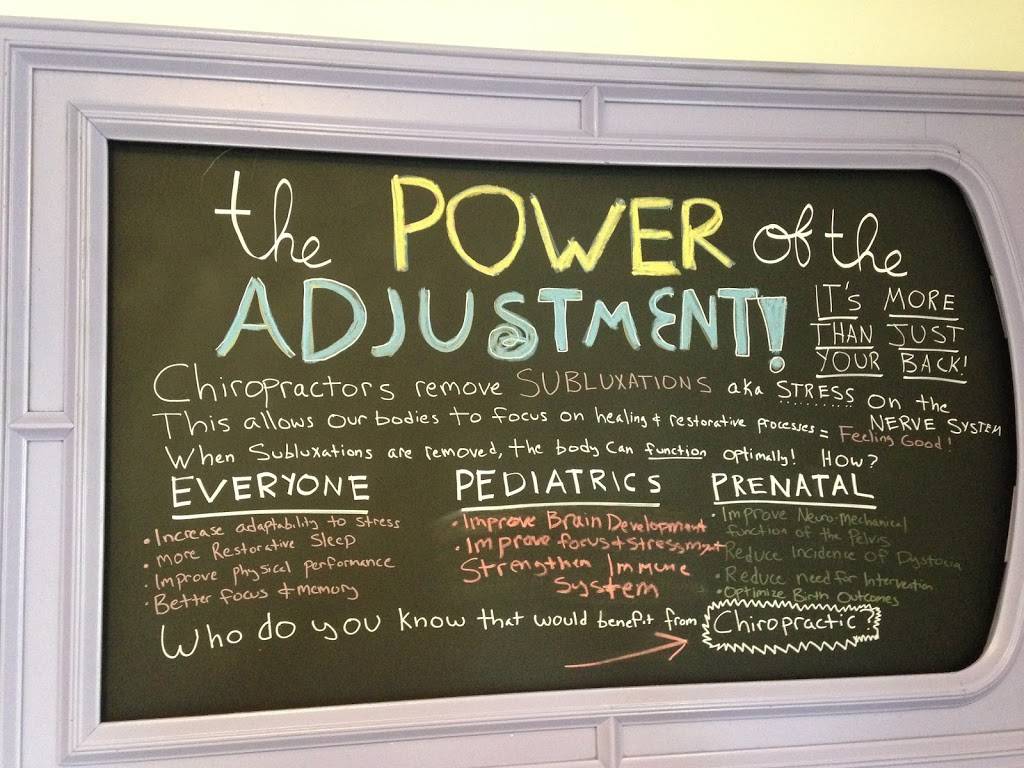 the POWER of the
ADJUSTMENT!
IT'S MORE
THAN JUST
YOUR BACK!
Chiropractors remove SUBLUXATIONS aka STRESS on the
NERVE SYSTEM
This allows our bodies to focus on healing + restorative processes = Feeling Good!
When Subluxations are removed, the body can function optimally! How?
EVERYONE
• Increase adaptability to stress
• more Restorative Sleep
• Improve physical performance
• Better focus + memory
PEDIATRICS
• Improve Brain Development
• Improve focus + stress mgt
Strengthen Immune
System
PRENATAL
• Improve Neuro-Mechanical
function of the Pelvis
Reduce Incidence of Dystocia
• Reduce need for Intervention
• Optimize Birth Outcomes
Who do you know that would benefit from Chiropractic?